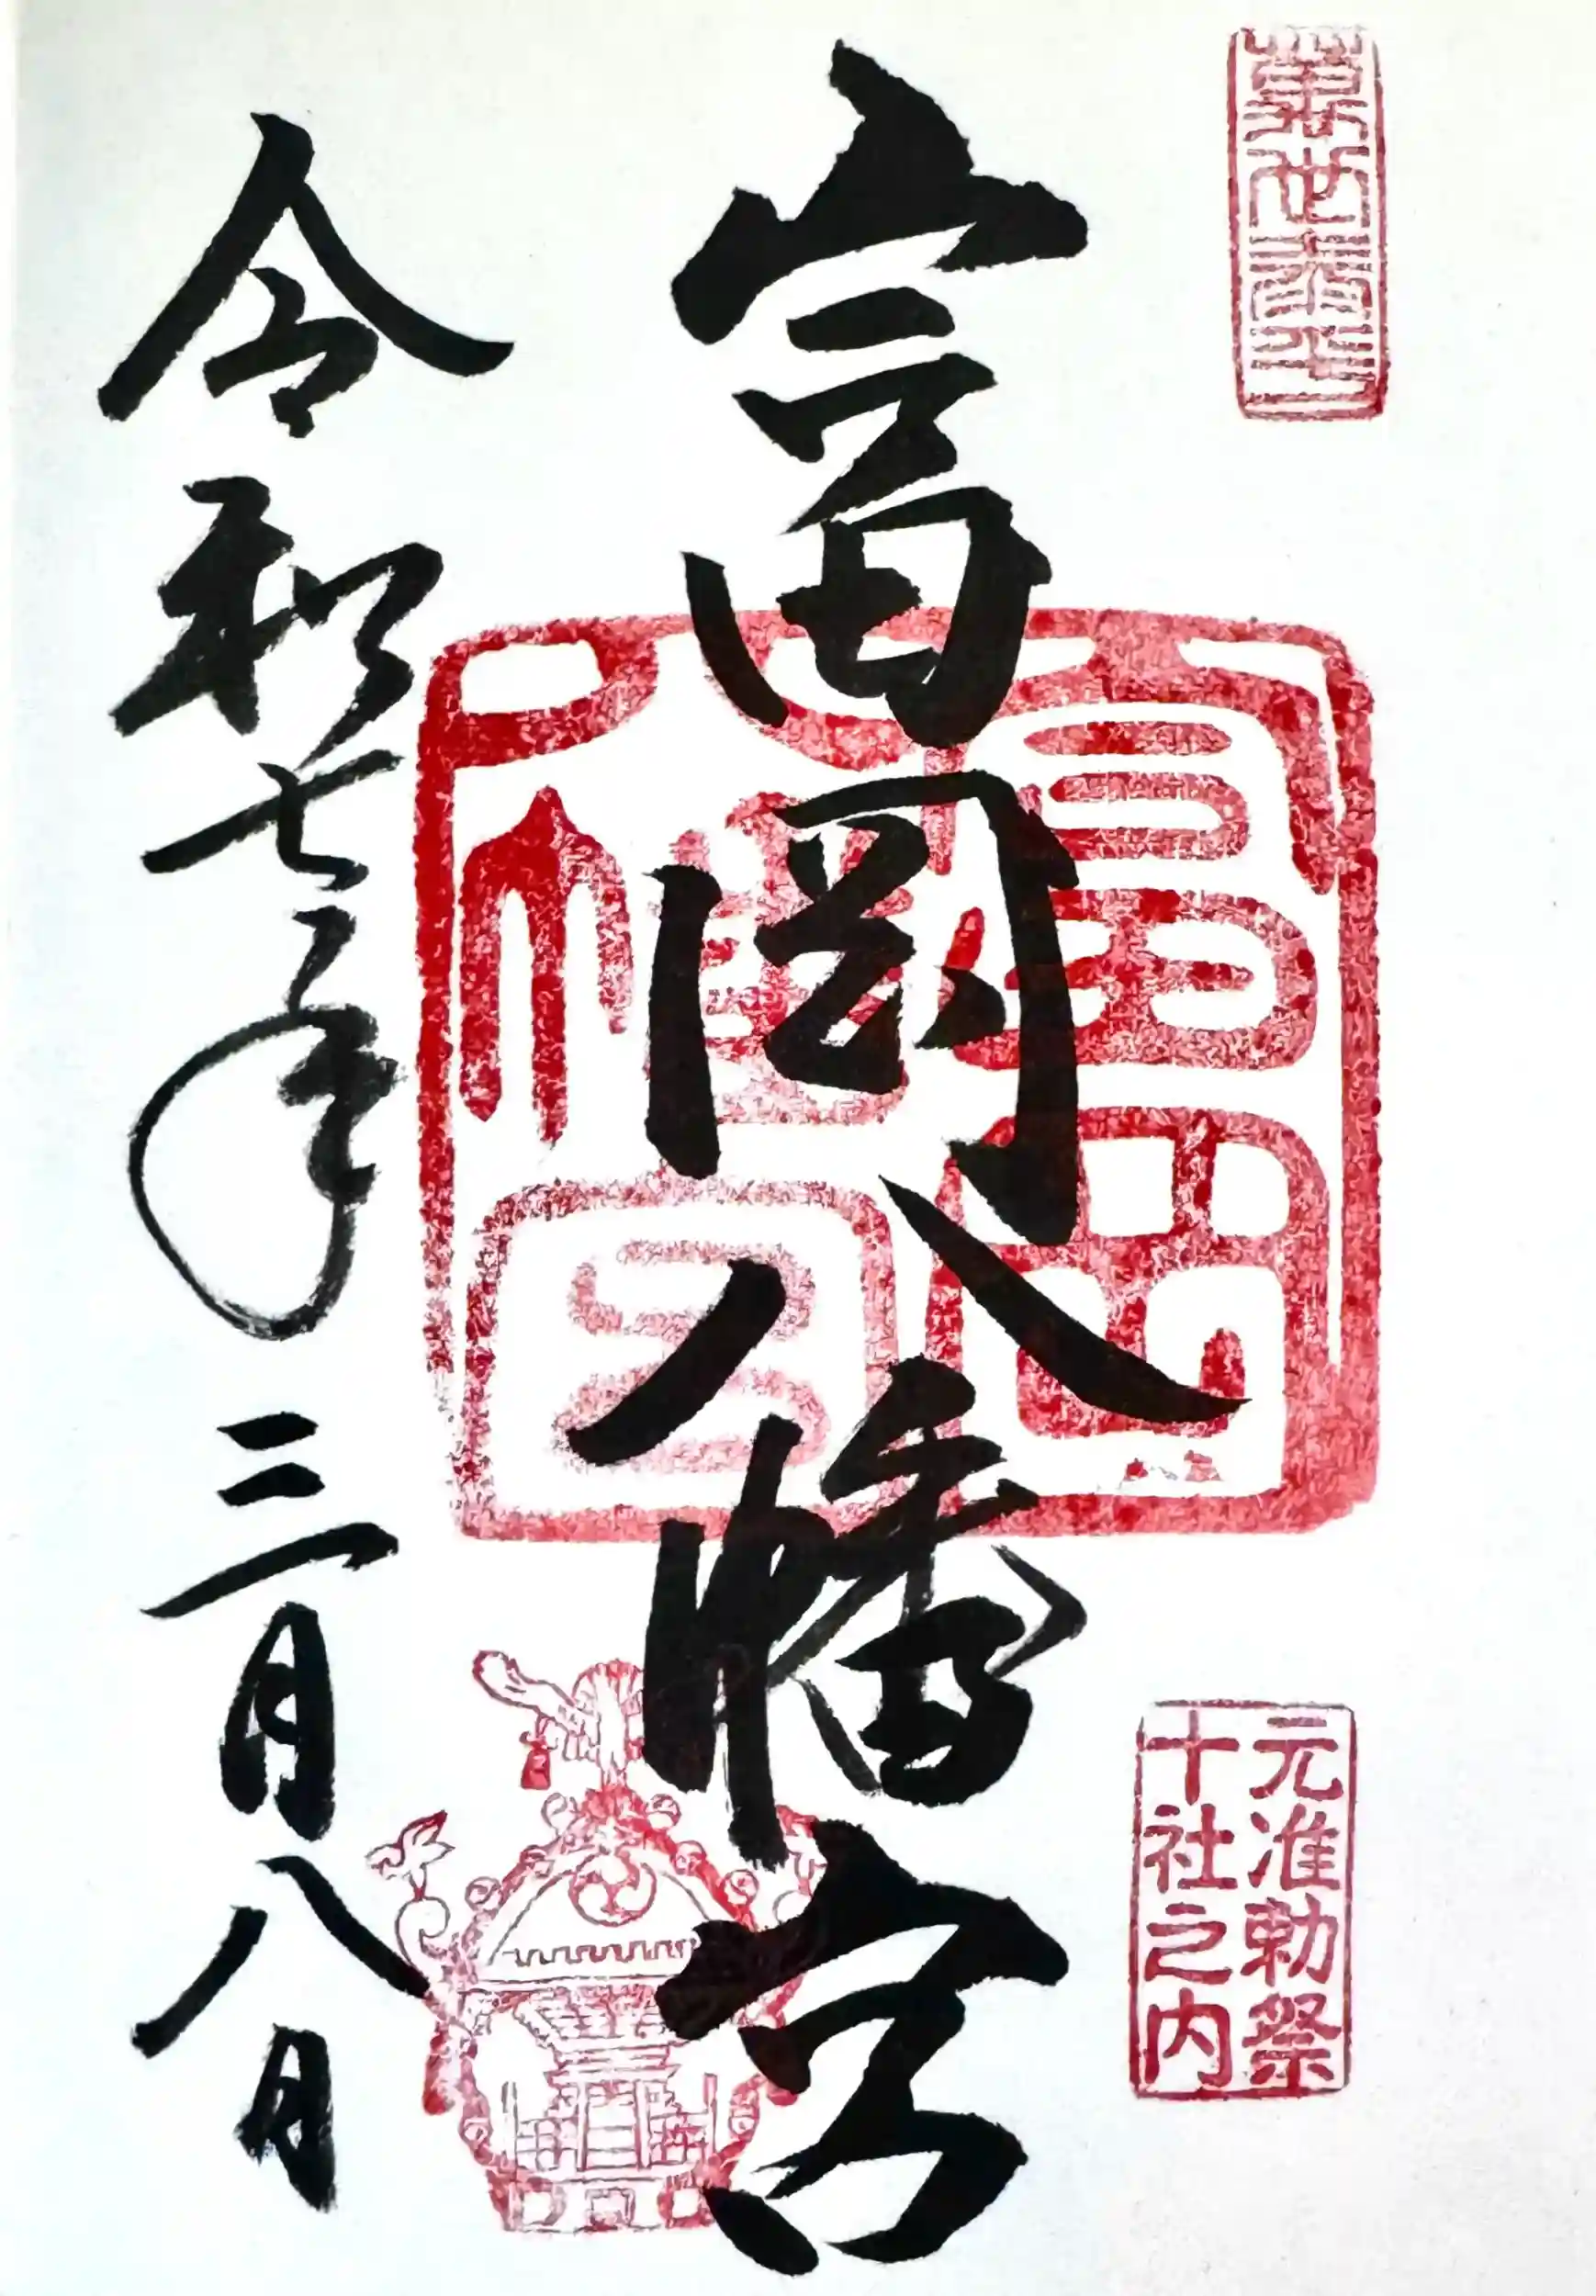 元准勅祭
十社之内
富岡八幡宮
富岡
八幡宮
令和七年三月八日